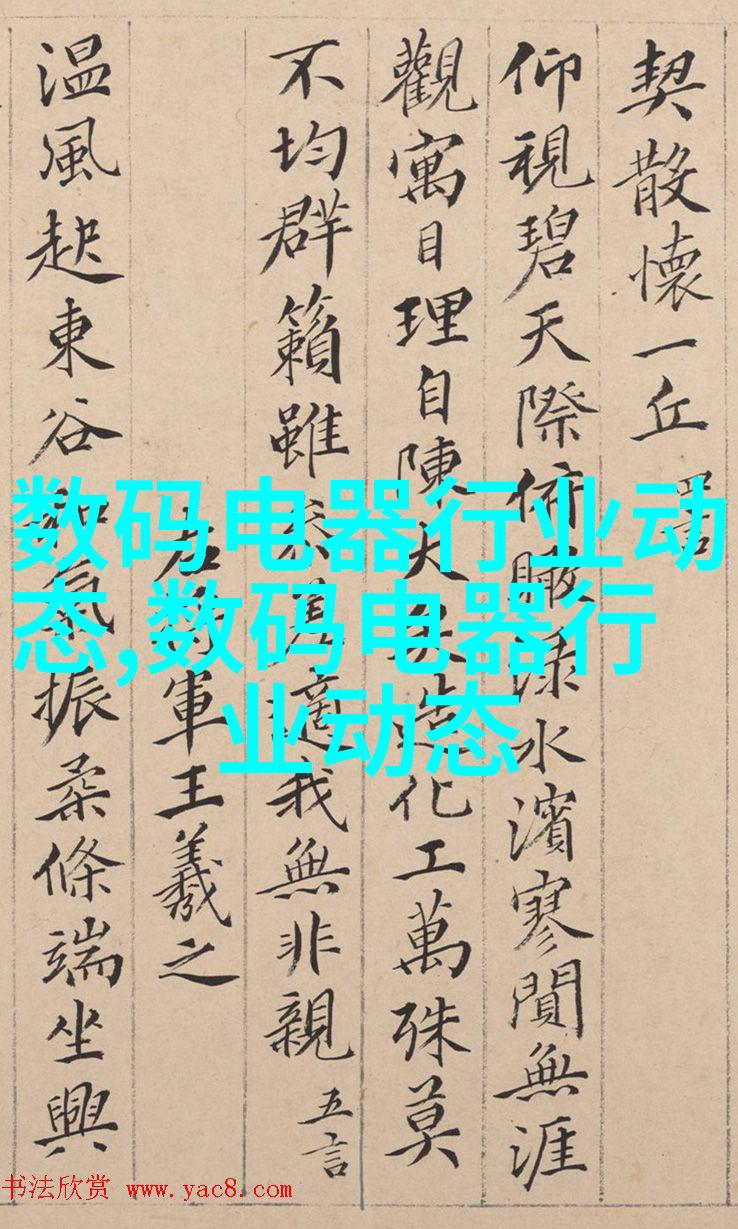 契散懷一丘
仰視碧天際俯瞰淥水濱寥閴無涯
觀寓目理自陳大矣造化工萬殊莫
不均群籟雖參差適我無非親 五言
右將軍王羲之
温風起東谷和氣振柔條端坐興
数码电器行业动
态,数码电器行
业动态
书法欣赏 www.yac8.com